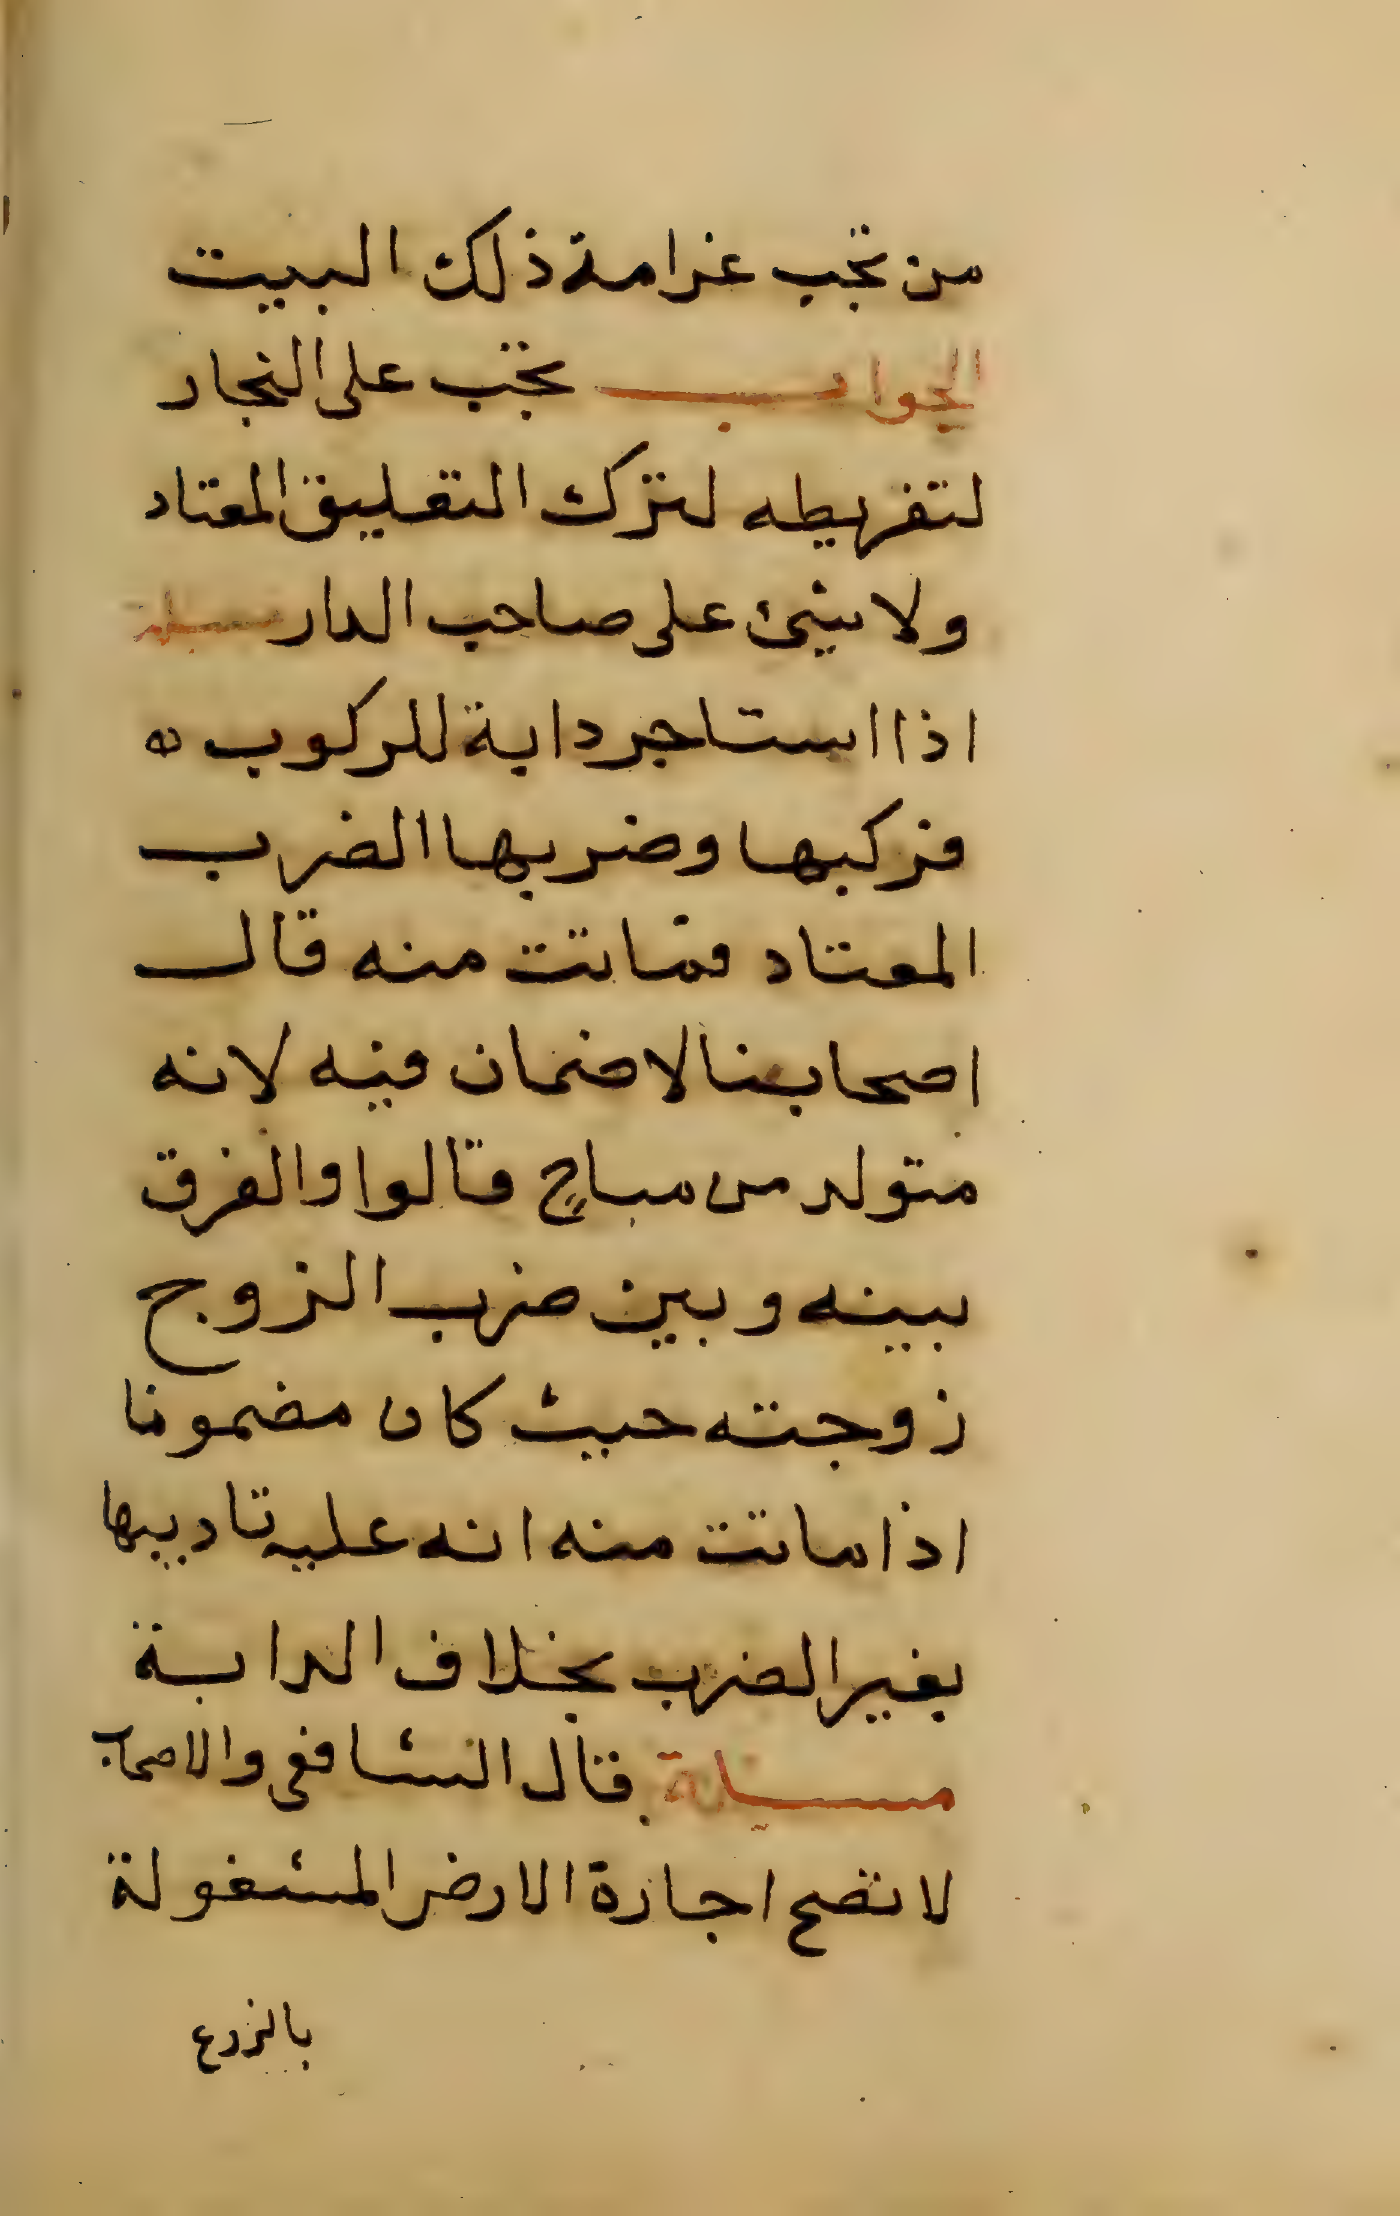 من تجب غرامة ذلك البيت
الجواب تجب على النجار
لتفريطه لترك التعليق المعتاد
ولا شئ على صاحب الدار مسئلة
اذا استاجر دابة للركوب
فركبها وضربها الضرب
المعتاد فماتت منه قال
اصحابنا لا ضمان فيه لانه
متولد من مباح قالوا والفرق
بينه وبين ضرب الزوج
زوجته حيث كان مضمونا
اذا ماتت منه انه عليه تاديبها
بغير الضرب بخلاف الدابة
مسئلة قال الشافعى والاصحاب
لا تصح اجارة الارض المشغولة
بالزرع